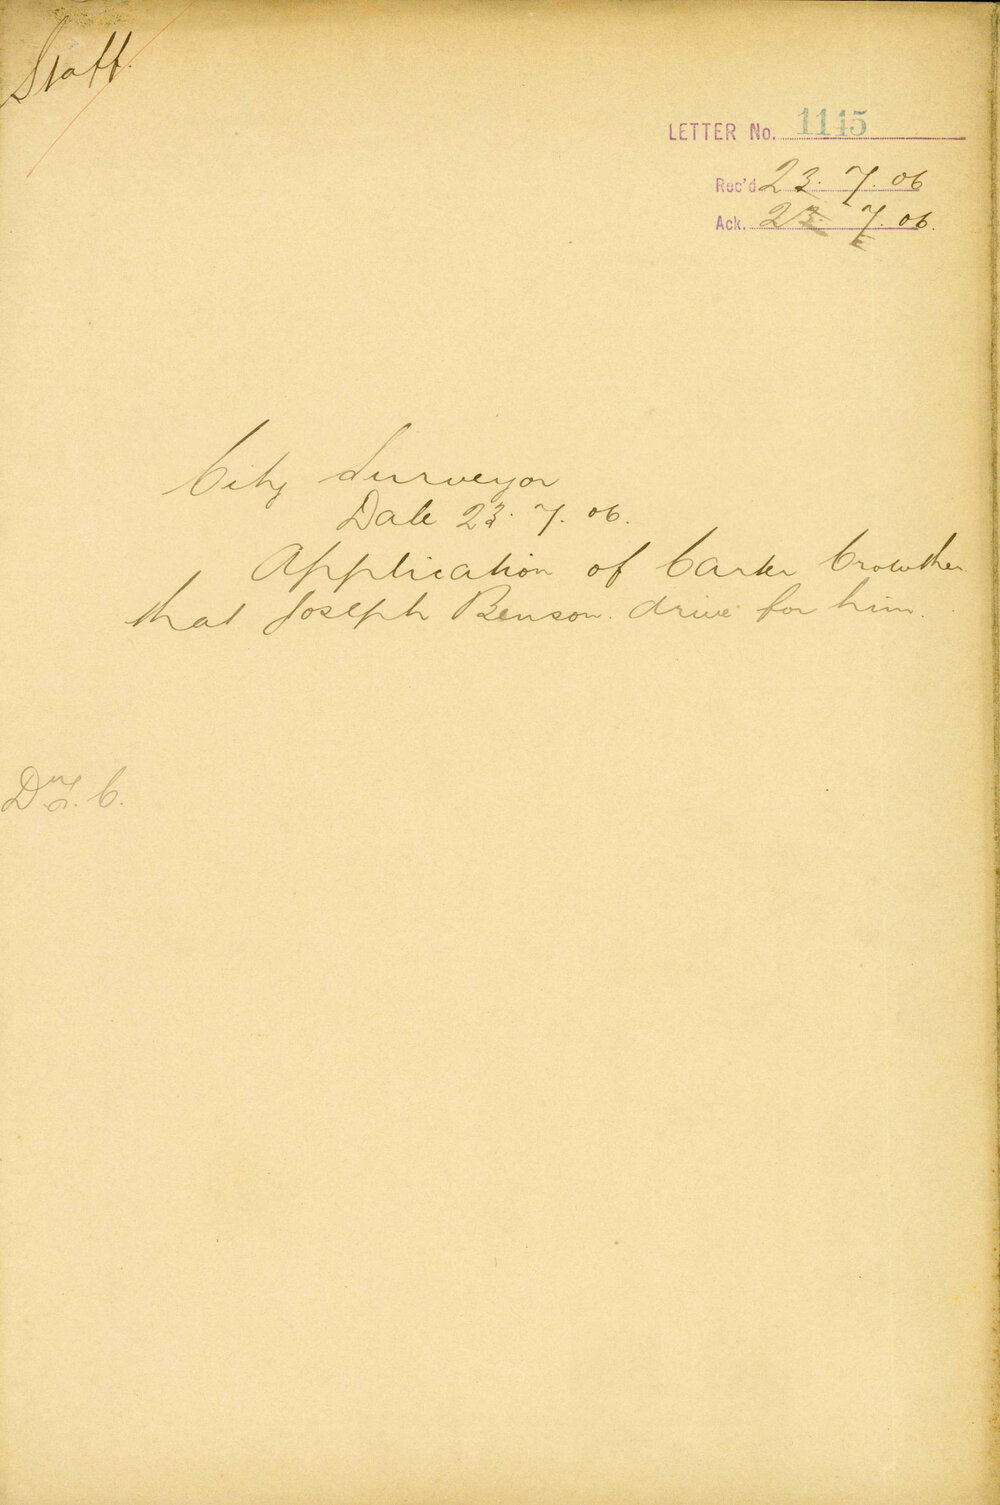 Staff.
LETTER No. 1145
Rec'd 23. 7. 06
Ack. 23. 7. 06.
City Surveyor
Date 23. 7. 06.
Application of Carter Crowther
that Joseph Benson. drive for him.